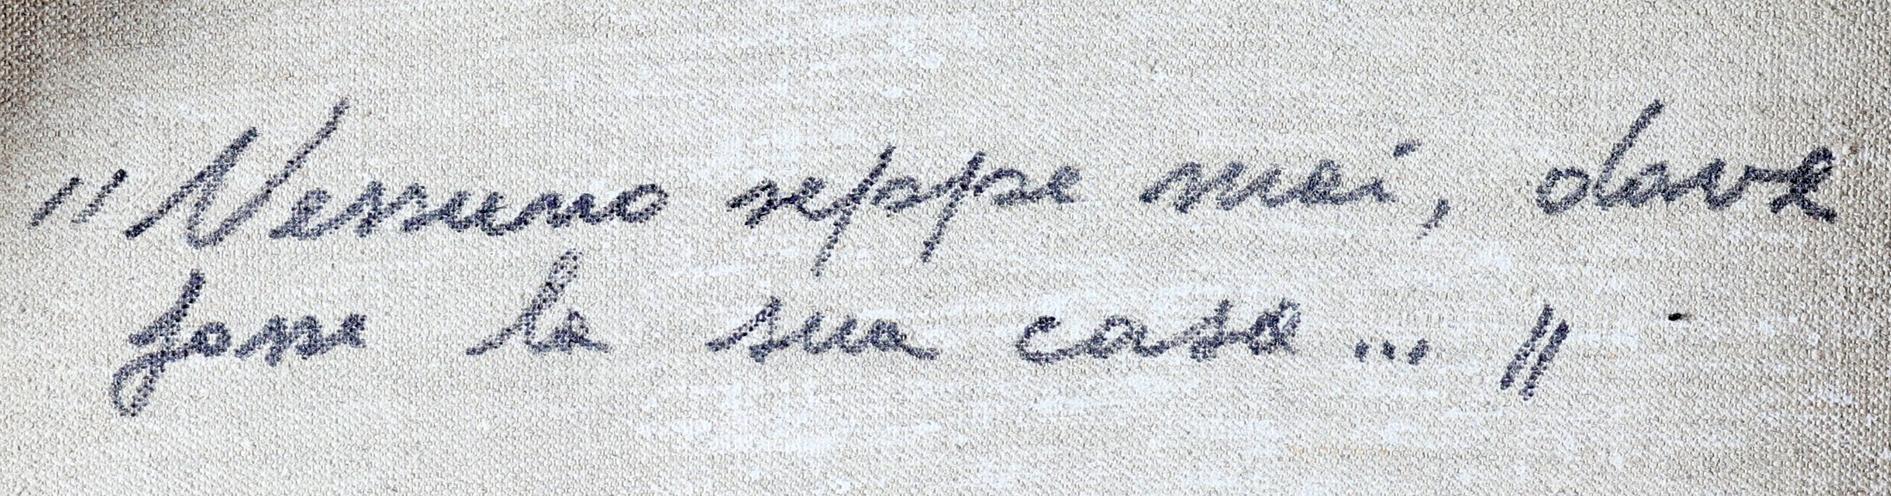 "Nessuno seppe mai, dove
fosse la sua casa..."